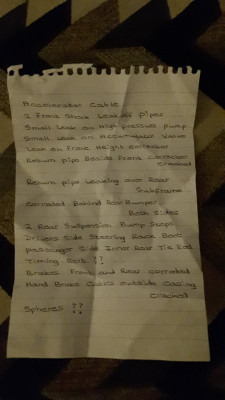 Accelerator Cable
2 Front Shock Leak off pipes
Small Leak on High pressure pump
Small Leak on Accumulator Valve
Leak on Front Height corrector
Return pipe Beside Front corrector
Cracked
Return pipe Leaking over Rear
Subframe
Corroded Behind Rear Bumper
Both Sides
2 Rear Suspension Bump Stops
Drivers Side Steering Rack Boot
passenger Side Inner Rear Tie Rod
Timing Belt ??
Brakes Front and Rear corroded
Hand Brake Cables outside Casing
Cracked
Spheres ??